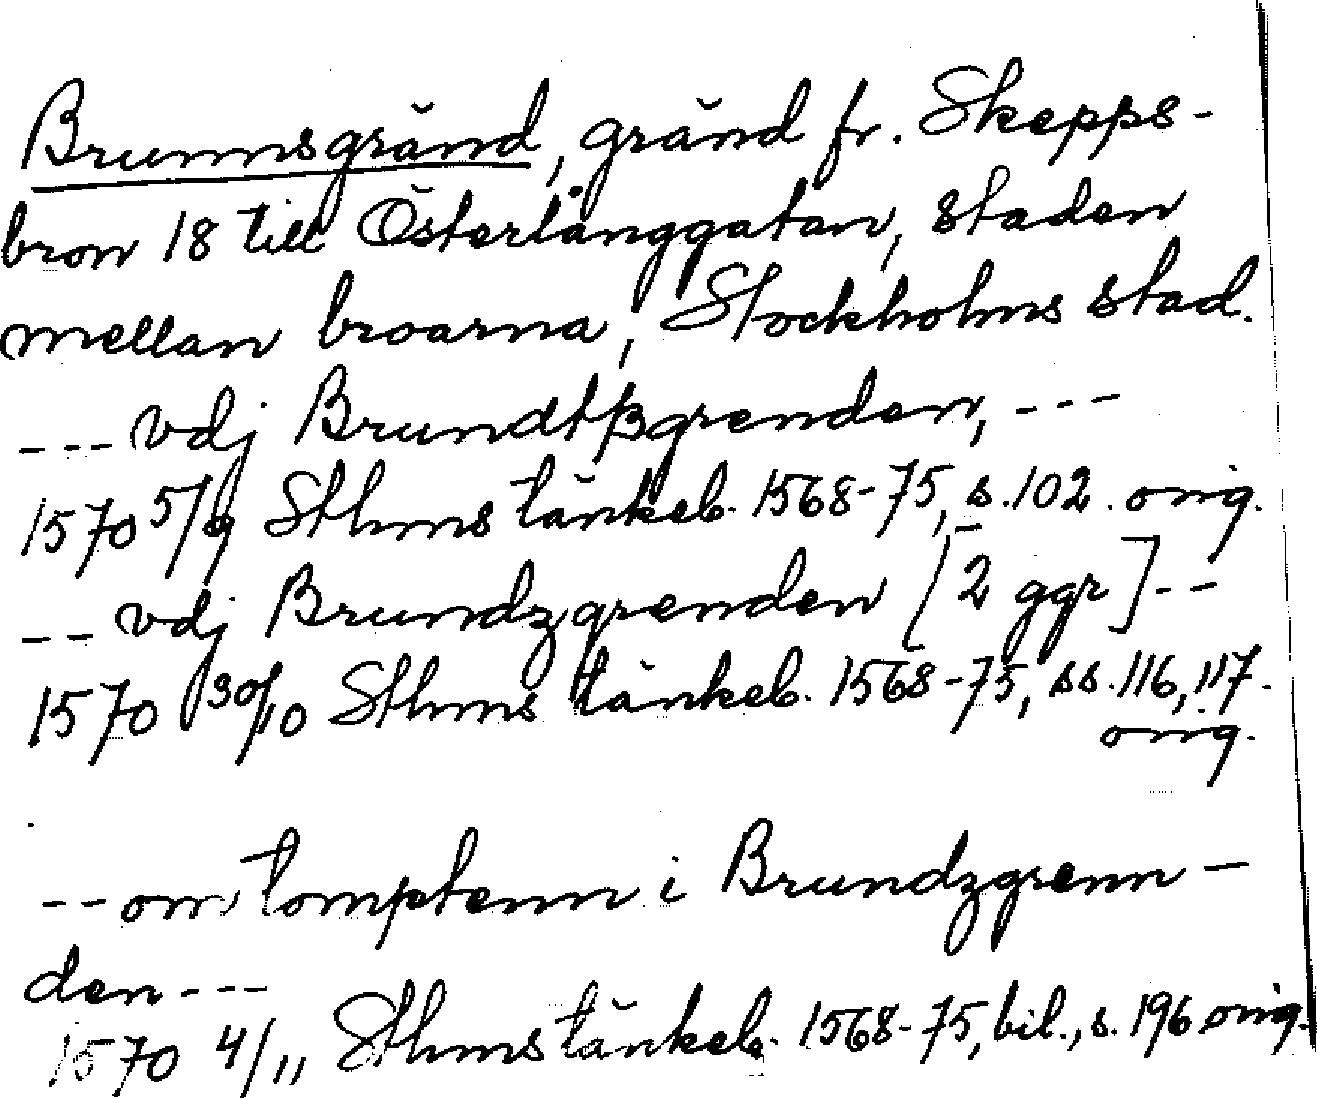 Brunnsgränd, gränd fr. Skepps-
bron 18 till Österlånggatan, staden
mellan broarna, Stockholms stad.
--- vdj Brundtßgrenden, ---
1570 5/9 Sthms tänkeb. 1568-75, s. 102. orig.
-- vdj Brundzgrenden [2 ggr] --
1570 30/10 Sthms tänkeb. 1568-75, ss. 116, 117.
orig.
-- om tomptenn i Brundzgrenn-
den ---
1570 4/11 Sthms tänkeb. 1568-75, bil., s. 196 orig.